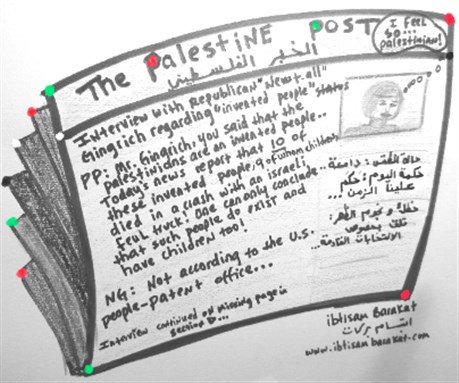 The PalestiNE POST
I feel
so...
palestinian!
الخبر الفلسطيني
Interview with Republican "Newt-all"
Gingrich regarding "invented people" status
PP: Mr. Gingrich, you said that the
palestinians are an invented people..
Today's news report that 10 of
these invented people, 9 of whom children,
died in a crash with an israeli
feul truck! One can only conclude..
that such people do exist and
have children too!
NG: Not according to the U.S.
people-patent office...
Interview continued on missing page in
section D...
حالة الطقس: دامعة..
حكمة اليوم: حكم
علينا الزمن...
حظك و نجوم الظهر:
بخصوص
الانتخابات القادمة...
ibtisam Barakat
ابتسام بركات
www.ibtisambarakat.com